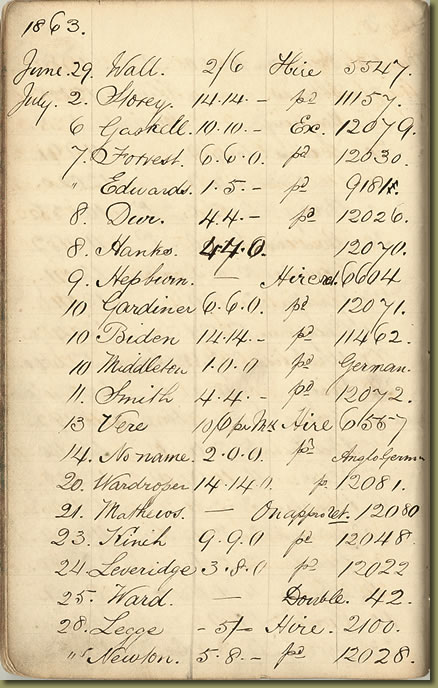 1863.
June. 29. Wall. 2/6 Hire 5547.
July. 2. Storey. 14.14.- pd 11157.
6 Gaskell. 10.10.- Ex. 12079.
7. Forrest. 6.6.0. pd 12030.
" Edwards. 1.5.- pd
8. Dur. 4.4.- pd 12026.
8. Hanks. 4.4.0. 12070.
9. Hepburn. — Hire 6604
10 Gardiner 6.6.0. pd 12071.
10 Biden 14.14.- pd 11462.
10 Middleton 1.0.0 pd German.
11. Smith 4.4.- pd 12072.
13 Vere 10/0 pr Mk Hire 6557
14. No name. 2.0.0. pd Anglo Germn
20. Wardroper 14.14.0. p. 12081.
21. Mathews. — On appro 12080
23. Kinch 9.9.0 pd 12048
24. Leveridge 3.8.0 pd 12022
25. Ward. — Double. 42.
28. Legge - 5/- Hire. 2100.
" Newton. 5.8.- pd 12028.